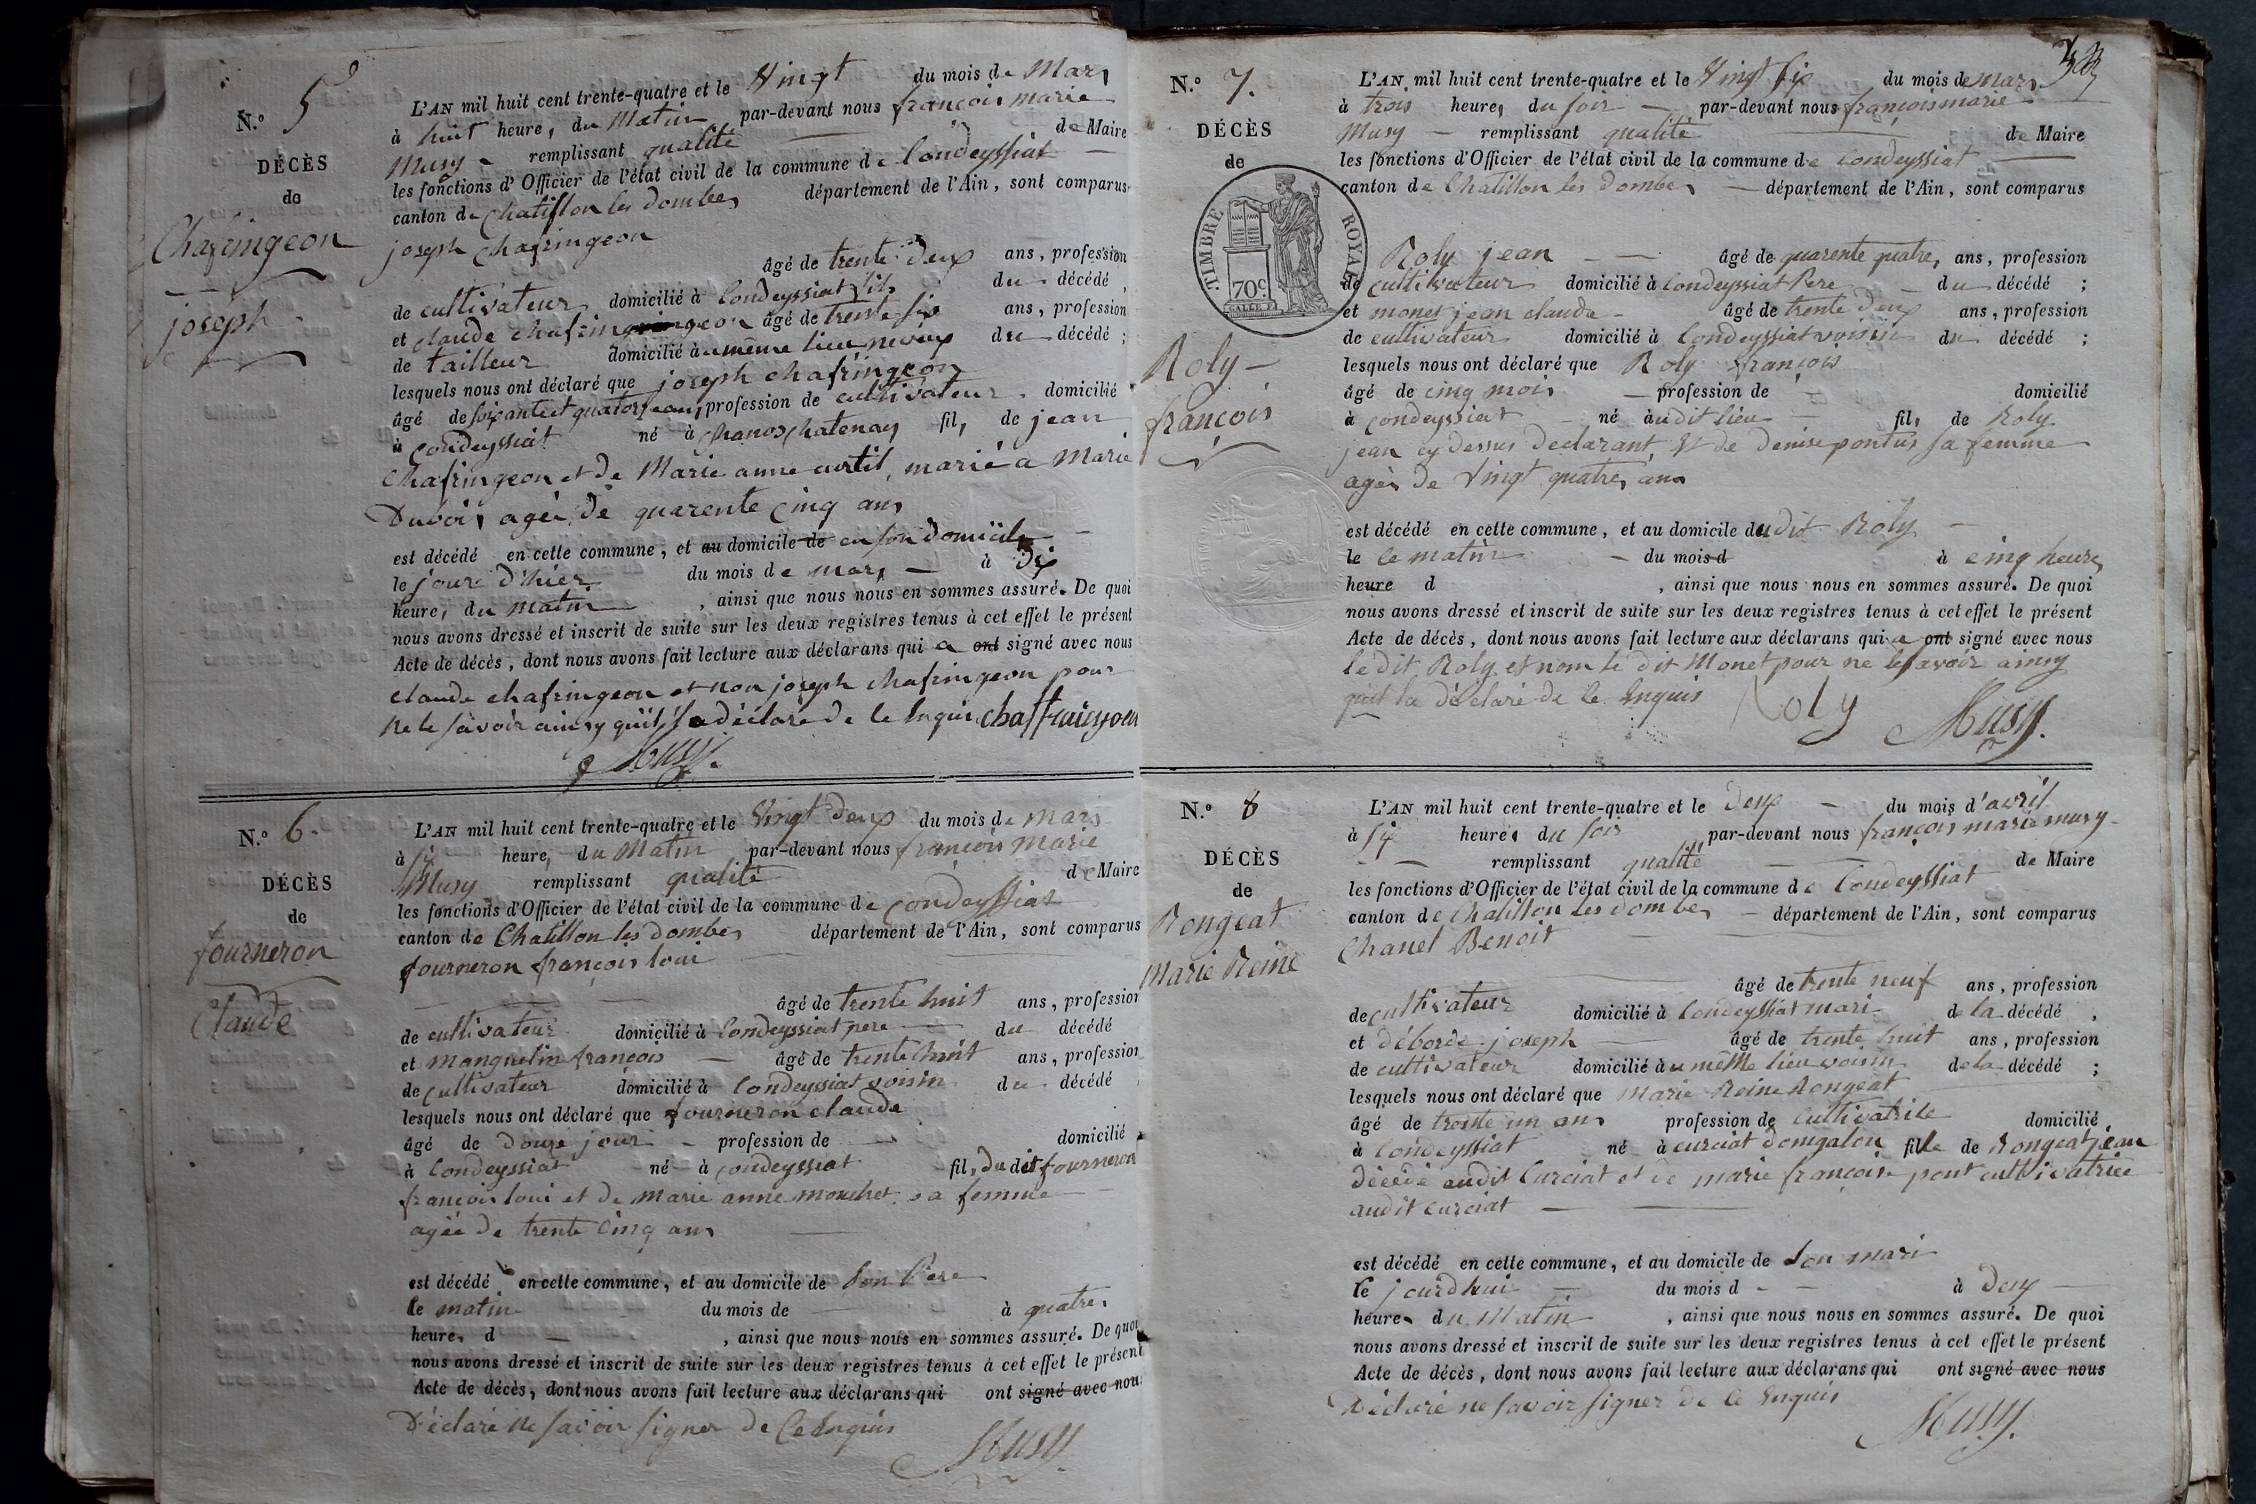 N.º 5
DÉCÈS
de
Chafringeon
joseph
L'AN mil huit cent trente-quatre et le Vingt du mois de Mars
à huit heures du Matin par-devant nous françois marie
Musy remplissant qualité de Maire
les fonctions d'Officier de l'état civil de la commune de Condeyssiat
canton de Chatillon les Dombes département de l'Ain, sont comparus
joseph Chafringeon
âgé de trente deux ans, profession
de cultivateur domicilié à Condeyssiat fils du décédé,
et claude chafringeon âgé de trente six ans, profession
de tailleur domicilié au même lieu neveux du décédé;
lesquels nous ont déclaré que joseph chafringeon
âgé de soixante et quatorze ans, profession de cultivateur domicilié
à Condeyssiat né à chanos chatenay fils de jean
Chafringeon et de Marie anne avril, marié a Marie
Dubois agée de quarente cinq ans
est décédé en cette commune, et au domicile de en son domicile
le jour d'hier du mois de mars à Dix
heures du matin, ainsi que nous nous en sommes assuré. De quoi
nous avons dressé et inscrit de suite sur les deux registres tenus à cet effet le présent
Acte de décès, dont nous avons fait lecture aux déclarans qui a ont signé avec nous
claude chafringeon et non joseph chafringeon pour
ne le savoir ainsy qu'il l'a déclaré de le Enquis chaffraingeon
Musy.
N.º 6.
DÉCÈS
de
fourneron
Claude
L'AN mil huit cent trente-quatre et le Vingt deux du mois de mars
à six heures du Matin par-devant nous françois marie
Musy remplissant qualité de Maire
les fonctions d'Officier de l'état civil de la commune de Condeyssiat
canton de Chatillon les Dombes département de l'Ain, sont comparus
fourneron françois loui
âgé de trente huit ans, profession
de cultivateur domicilié à Condeyssiat pere du décédé
et manguelin françois âgé de trente huit ans, profession
de cultivateur domicilié à Condeyssiat voisin du décédé
lesquels nous ont déclaré que fourneron claude
âgé de Douze jour profession de domicilié
à Condeyssiat né à condeyssiat fils du dit fourneron
françois loui et de marie anne mouchet sa femme
agée de trente cinq ans
est décédé en cette commune, et au domicile de son Pere
le matin du mois de à quatre
heures d, ainsi que nous nous en sommes assuré. De quoi
nous avons dressé et inscrit de suite sur les deux registres tenus à cet effet le présent
Acte de décès, dont nous avons fait lecture aux déclarans qui ont signé avec nou
Déclaré ne savoir signer de Ce Enquis
Musy
N.º 7.
DÉCÈS
de
TIMBRE ROYAL
70c
Roly
françois
L'AN mil huit cent trente-quatre et le Vingt six du mois de mars
à trois heures du soir par-devant nous françois marie
Musy remplissant qualité de Maire
les fonctions d'Officier de l'état civil de la commune de Condeyssiat
canton de Chatillon les Dombes département de l'Ain, sont comparus
Roly jean âgé de quarente quatre ans, profession
de cultivateur domicilié à Condeyssiat Pere du décédé;
et monet jean claude âgé de trente deux ans, profession
de cultivateur domicilié à Condeyssiat voisin du décédé;
lesquels nous ont déclaré que Roly françois
âgé de cinq mois profession de domicilié
à condeyssiat né audit lieu fils de Roly
jean cy dessus declarant, Et de Denise pontus sa femme
agée de Vingt quatre ans
est décédé en cette commune, et au domicile dudit Roly
le ce matin du mois d à cinq heures
heure d, ainsi que nous nous en sommes assuré. De quoi
nous avons dressé et inscrit de suite sur les deux registres tenus à cet effet le présent
Acte de décès, dont nous avons fait lecture aux déclarans qui a ont signé avec nous
le dit Roly et nom le dit Monet pour ne le savoir ainsy
quil la déclaré de le Enquis Roly Musy.
N.º 8
DÉCÈS
de
Rongeat
Marie Reine
L'AN mil huit cent trente-quatre et le Deux du mois d'avril
à six heures du soir par-devant nous françois marie musy
remplissant qualité de Maire
les fonctions d'Officier de l'état civil de la commune de Condeyssiat
canton de Chatillon les Dombes département de l'Ain, sont comparus
Chanel Benoit
âgé de trente neuf ans, profession
de cultivateur domicilié à Condeyssiat mari de la décédé,
et déborde joseph âgé de trente huit ans, profession
de cultivateur domicilié au même lieu voisin de la décédé;
lesquels nous ont déclaré que Marie Reine Rongeat
âgé de trente un ans profession de cultivatrice domicilié
à Condeyssiat né à curciat dongalon fille de Rongeat jean
décédé audit Curciat et de marie françoise pont cultivatrice
audit curciat
est décédé en cette commune, et au domicile de Son mari
le jourdhui du mois d à Deux
heures du Matin, ainsi que nous nous en sommes assuré. De quoi
nous avons dressé et inscrit de suite sur les deux registres tenus à cet effet le présent
Acte de décès, dont nous avons fait lecture aux déclarans qui ont signé avec nous
Déclaré ne savoir signer de Ce Enquis
Musy.